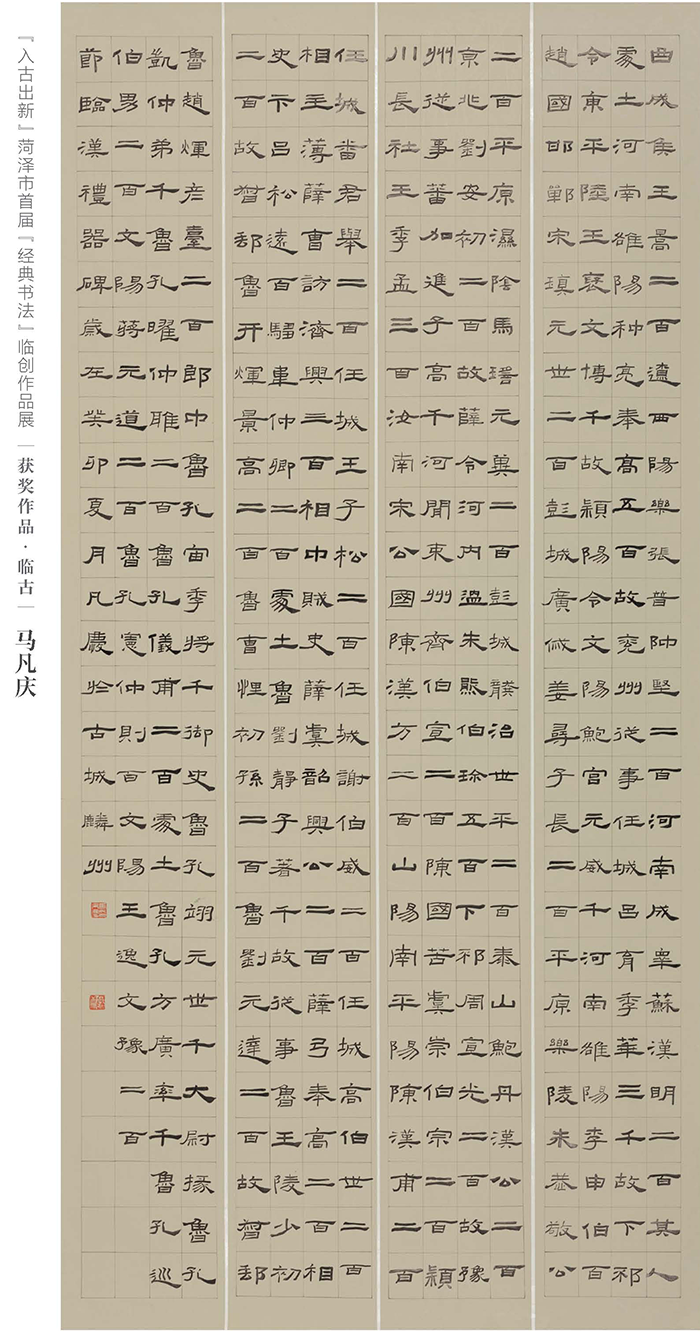 『入古出新』菏泽市首届『经典书法』临创作品展｜获奖作品·临古｜马凡庆
曲成侯王暠二百遼西陽樂張普仲堅二百河南成皋蘇漢明二百其人
處土河南雒陽种亮奉高五百故兗州從事任城呂育季華三千故下邳
令東平陸王褒文博千故潁陽令文陽鮑宮元威千河南雒陽李申伯百
趙國邯鄲宋瑱元世二百彭城廣戚姜尋子長二百平原樂陵朱恭敬公
二百平原濕陰馬瑶元冀二百彭城龔治世平二百泰山鮑丹漢公二百
京兆劉安初二百故薛令河內溫朱熊伯珍五百下邳周宣光二百故豫
州從事蕃加進子高千河閒束州齊伯宣二百陳國苦虞崇伯宗二百潁
川長社王季孟三百汝南宋公國陳漢方二百山陽南平陽陳漢甫二百
任城番君舉二百任城王子松二百任城謝伯威二百任城高伯世二百
相主薄薛曹訪濟興三百相中賊史薛虞韶興公二百薛弓奉高二百相
史卞呂松遠百騶韋仲卿二百處土魯劉靜子著千故從事魯王陵少初
二百故督郵魯開煇景高二百魯曹悝初孫二百魯劉元達二百故督郵
魯趙煇彦臺二百郎中魯孔宙季將千御史魯孔翊元世千大尉掾魯孔
凱仲弟千魯孔曜仲雅二百魯孔儀甫二百處土魯孔方廣率千魯孔巡
伯男二百文陽蔣元道二百魯孔憲仲則百文陽王逸文豫二百
節臨漢禮器碑歲在癸卯夏月凡慶於古城麟州